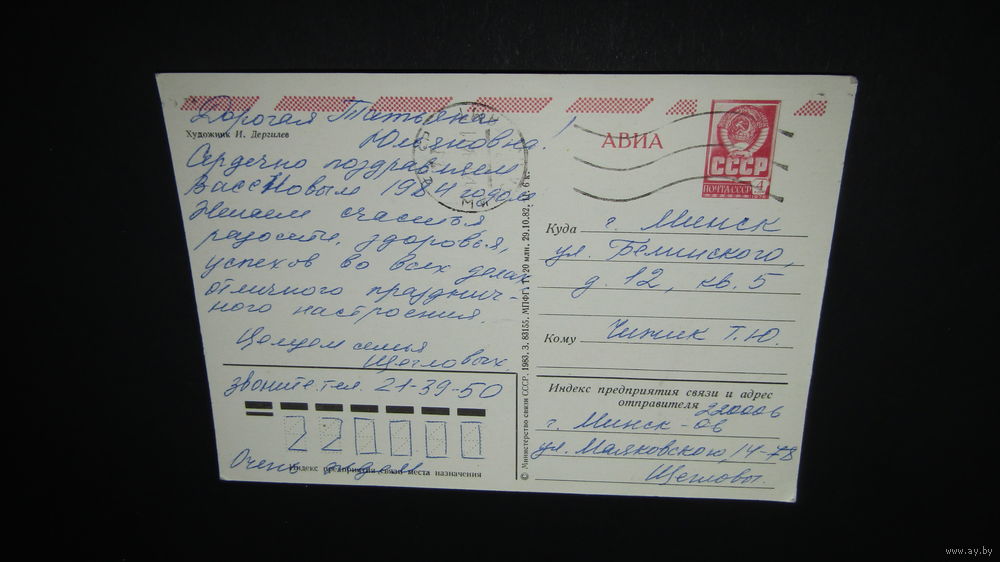 Дорогая Татьяна
Юльяновна!
Художник И. Дергилев
Сердечно поздравляем
Вас с Новым 1984 годом
Желаем счастья
радости, здоровья,
успехов во всех делах
отличного празднич-
ного настроения.
Целуем семья
Щегловых.
звоните тел. 21-39-50
220001
Очень ждем
Индекс предприятия связи места назначения
© Министерство связи СССР. 1983. З. 83155. МПФГ. Т. 20 млн. 29.10.82. Ц. 6 к.
АВИА
СССР
ПОЧТА СССР 4
Куда г. Минск
ул. Белинского,
д. 12, кв. 5
Кому Чижик Т.Ю.
Индекс предприятия связи и адрес
отправителя 220006
г. Минск-06
ул. Маяковского, 14-78
Щегловы.
www.ay.by